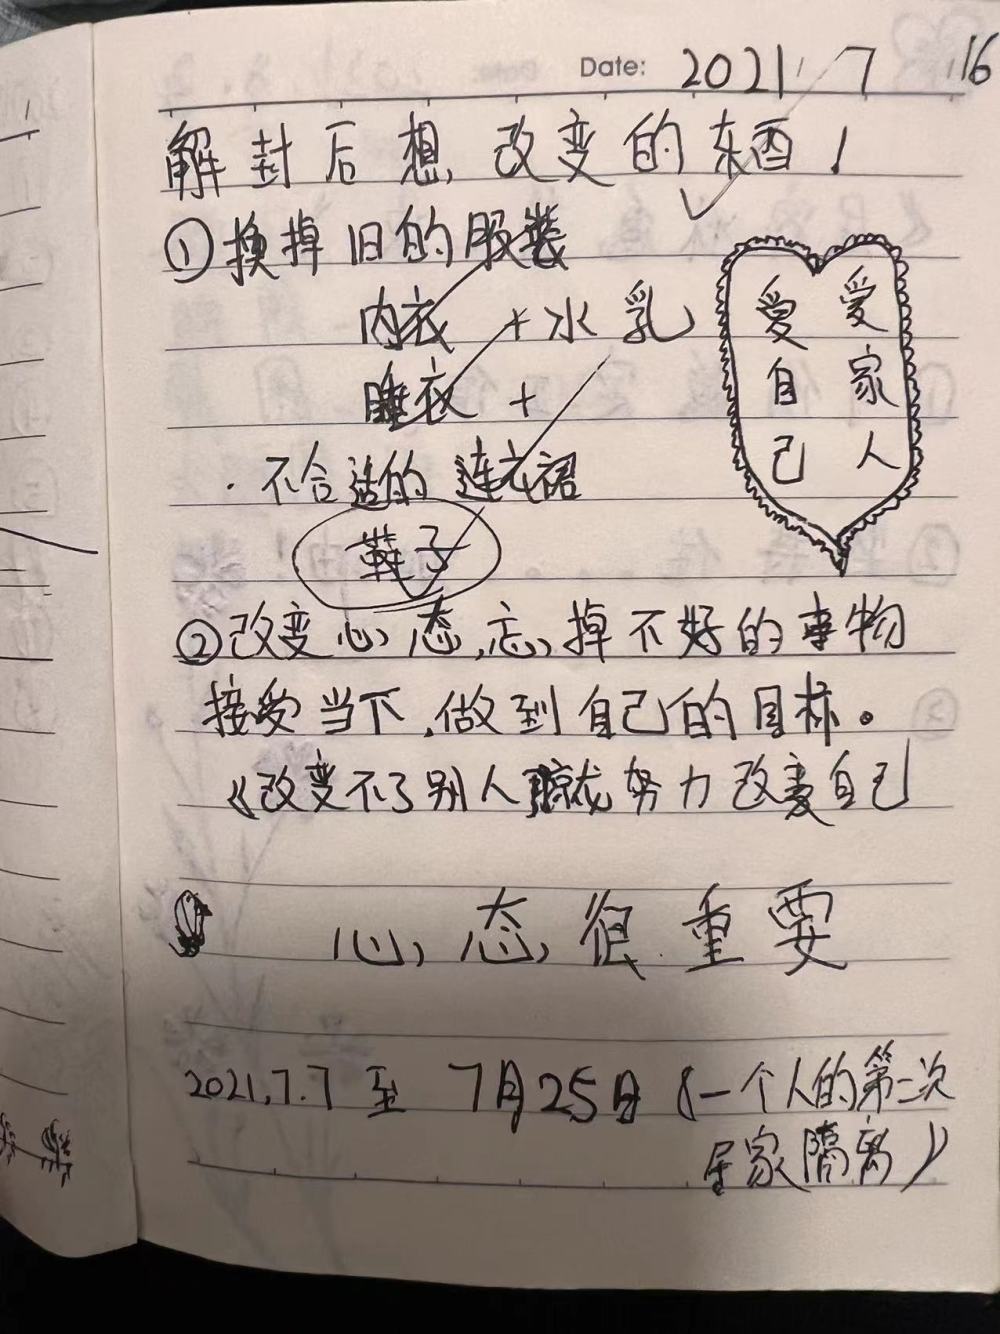 Date: 2021 7 16
解封后想改变的东西！
①换掉旧的服装
内衣 + 水乳
睡衣 +
· 不合适的 连衣裙
鞋子
爱自己
爱家人
②改变心态,忘掉不好的事物
接受当下,做到自己的目标。
《改变不了别人 就努力改变自己
心态很重要
2021.7.7 至 7月25日 (一个人的第二次
居家隔离)